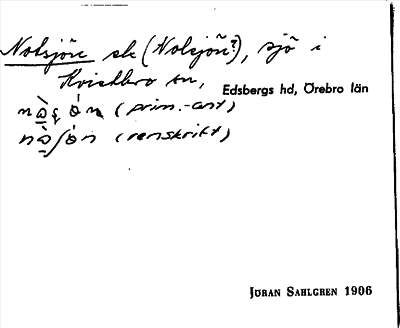 Notsjön sk (Nolsjön?), sjö i
Kvistbro sn,
Edsbergs hd, Örebro län
(prim.-ant)
(renskrift)
JÖRAN SAHLGREN 1906